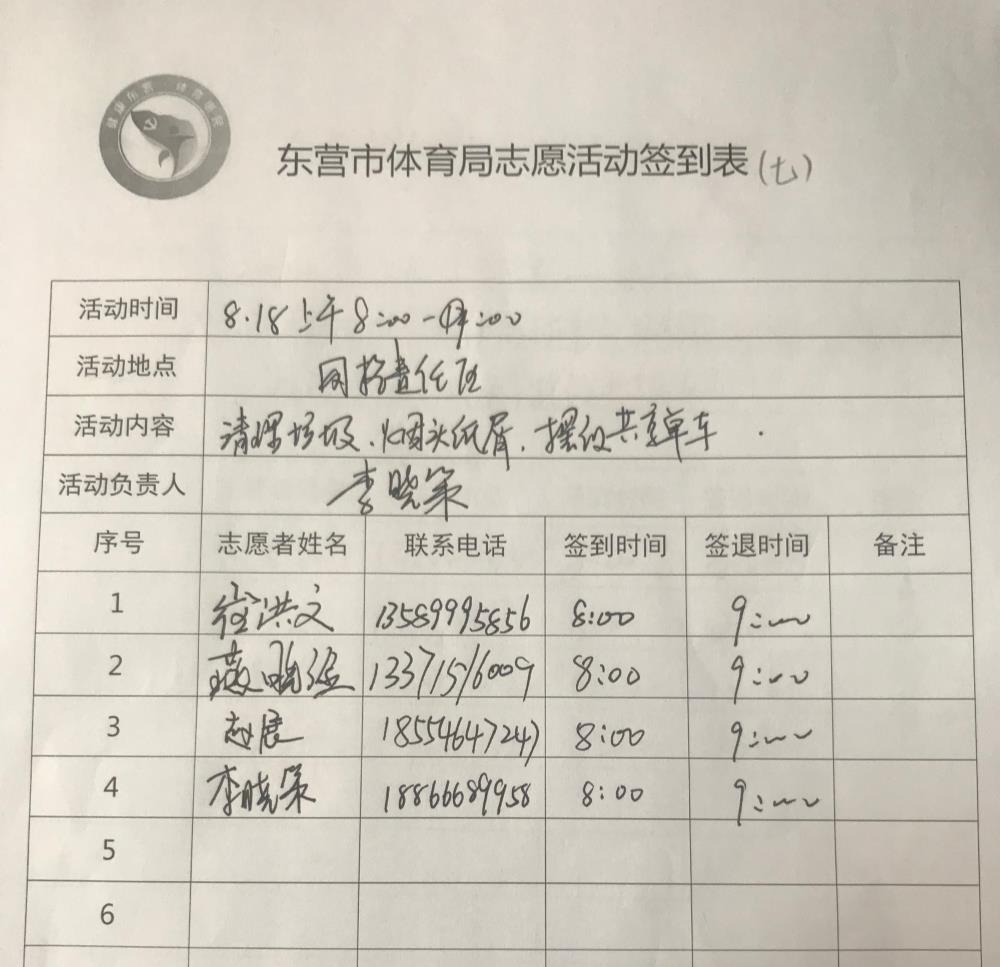 健康东营 体育惠民
东营市体育局志愿活动签到表(七)
活动时间 8.18上午8:00-9:00
活动地点 网格责任区
活动内容 清理垃圾、烟头纸屑,摆放共享单车.
活动负责人 李晓策
序号 志愿者姓名 联系电话 签到时间 签退时间 备注
1 徐洪文 13589995856 8:00 9:00
2 13371516009 8:00 9:00
3 赵展 18554647247 8:00 9:00
4 李晓策 18866689958 8:00 9:00
5
6